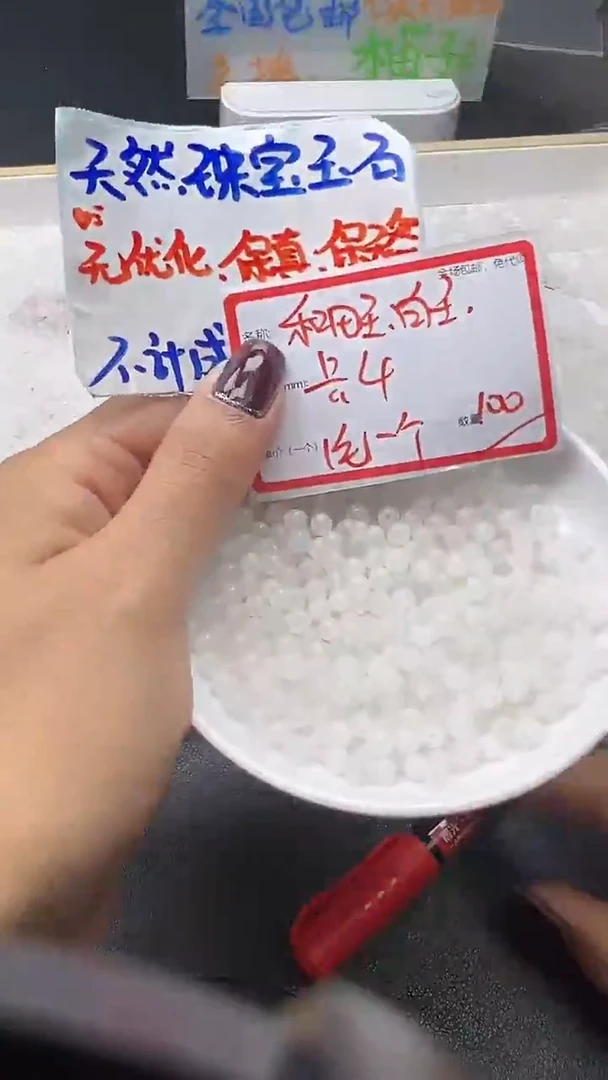 全国包邮
天然.珠宝玉石
无优化.保真.保
不计成
全场包邮、免代
名称:
和田玉.白玉.
mm:
4
价(一个)
1元一个
数量
100